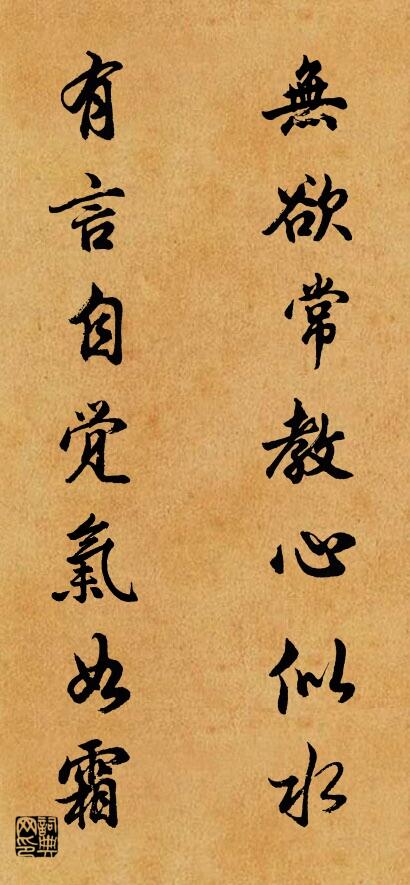 無欲常教心似水
有言自覺氣如霜
詞典网印